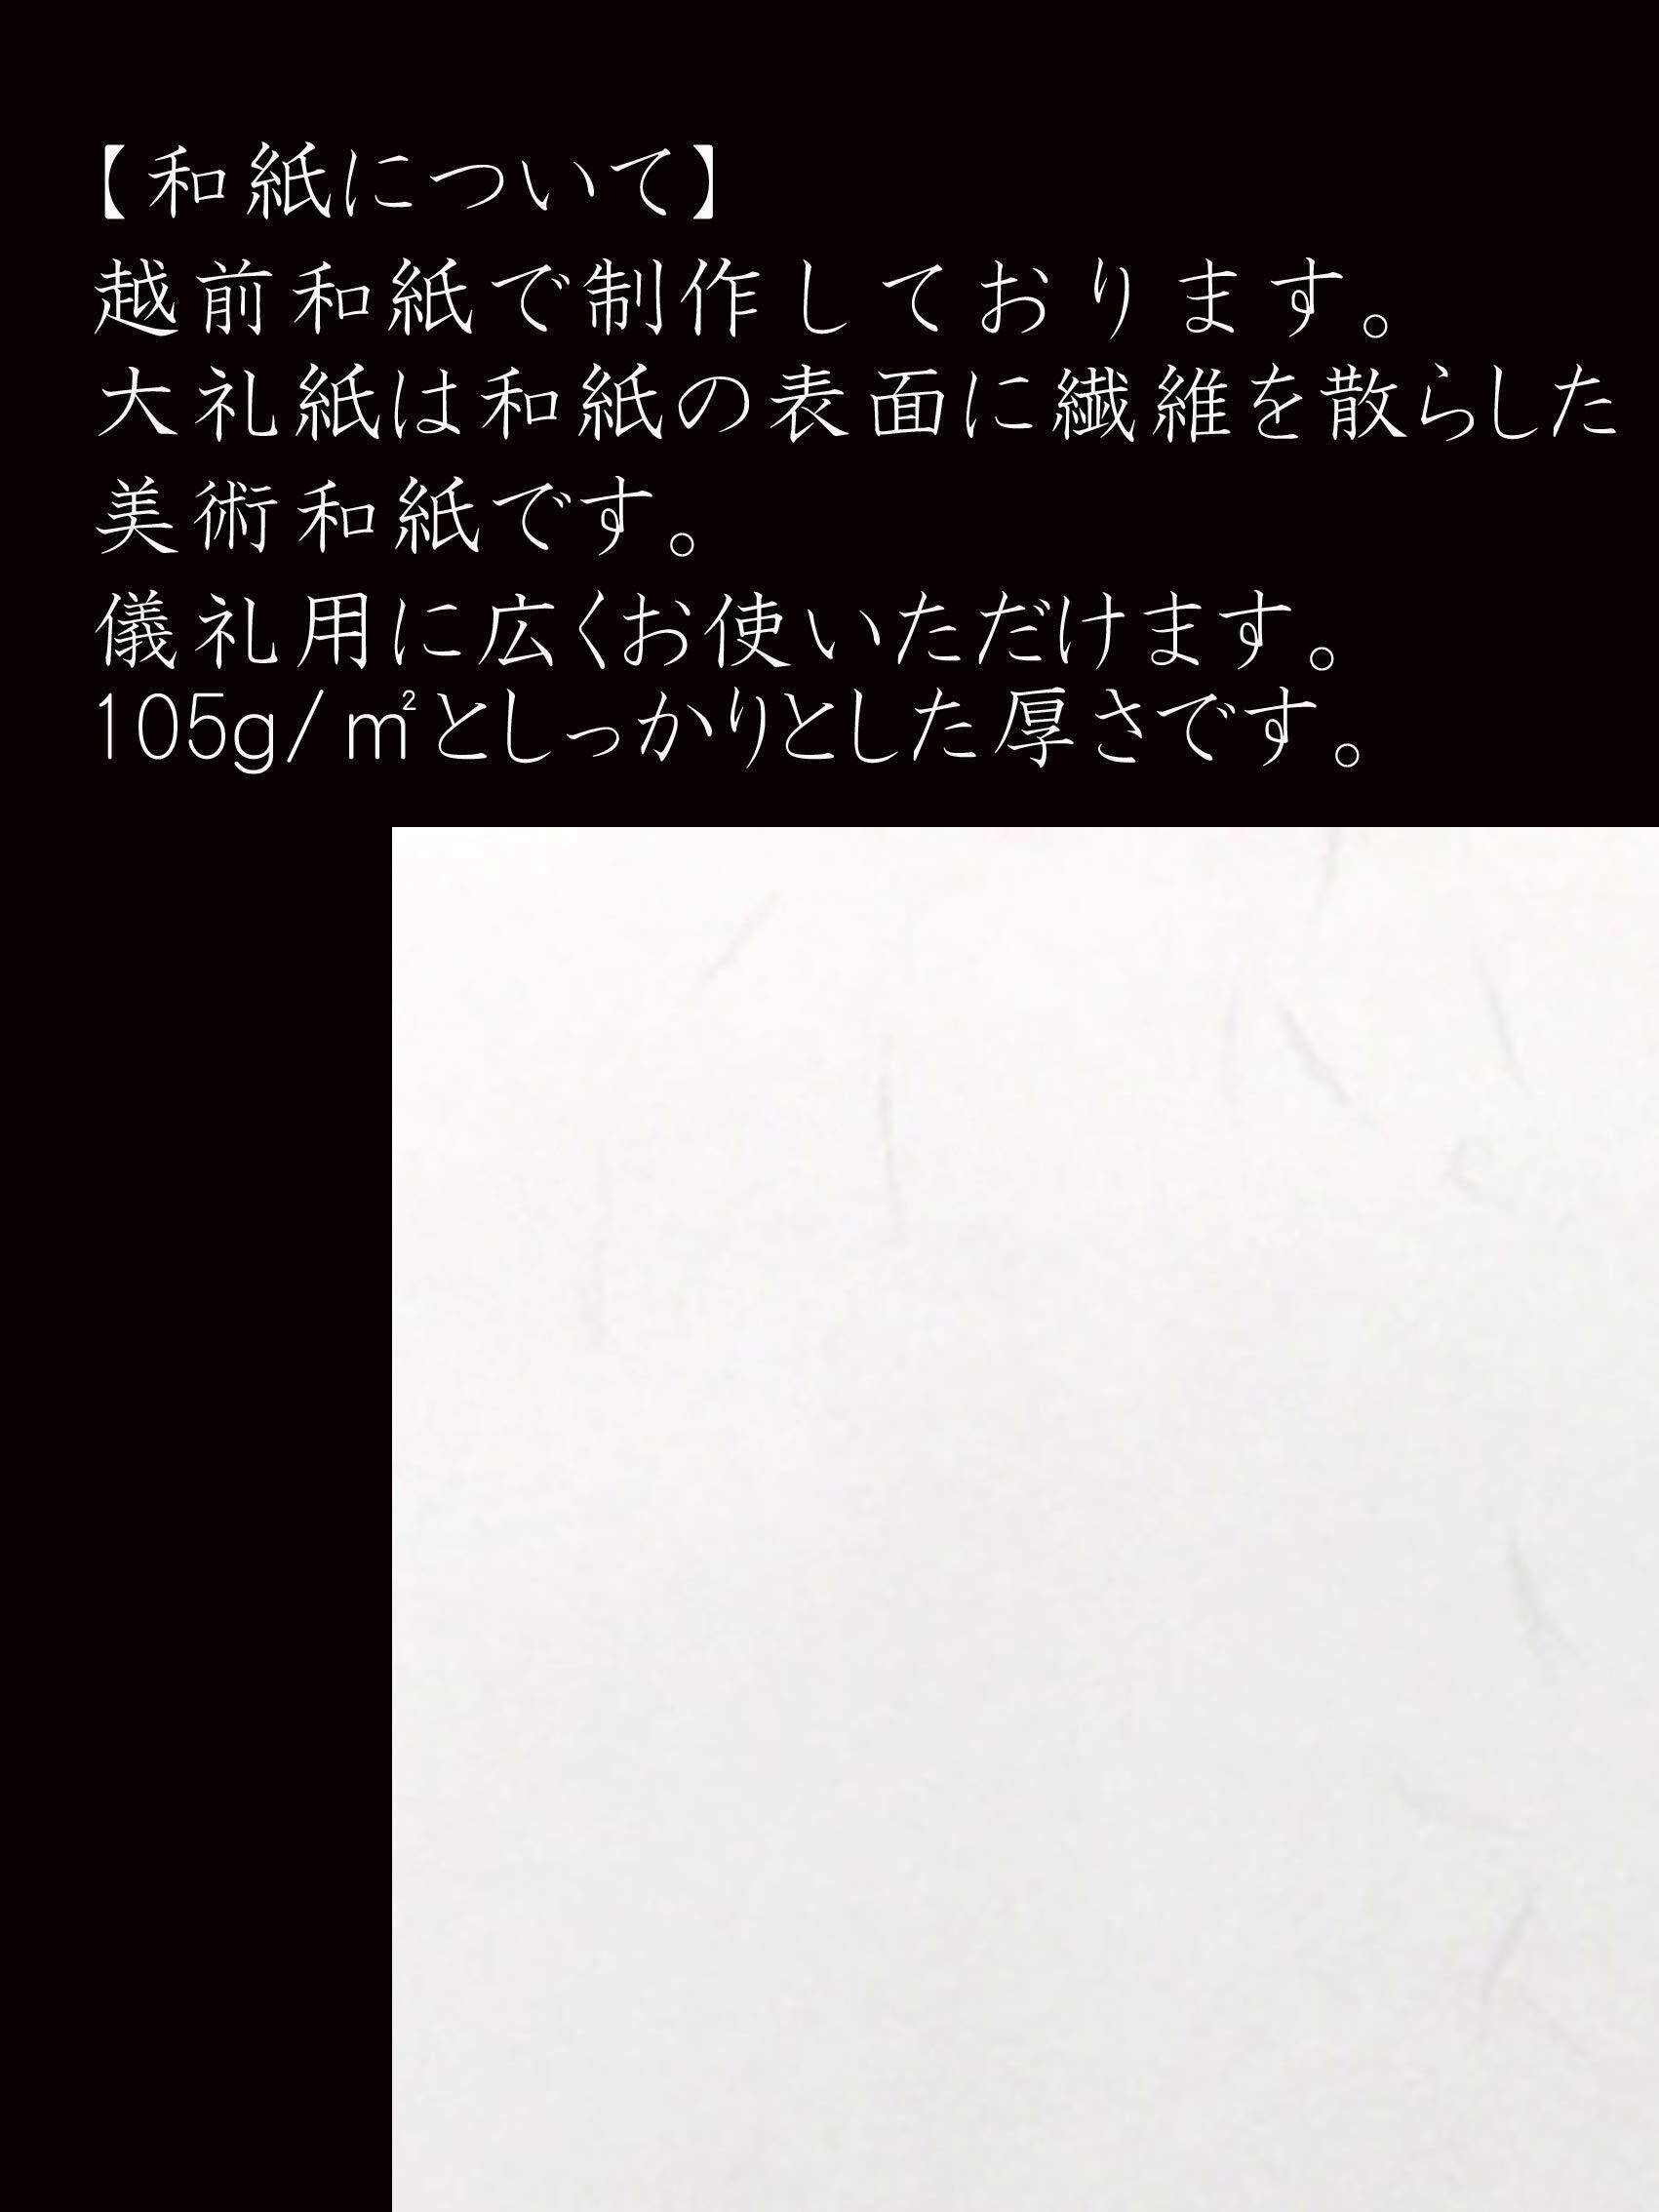 【和紙について】
越前和紙で制作しております。
大礼紙は和紙の表面に繊維を散らした
美術和紙です。
儀礼用に広くお使いいただけます。
105g/㎡としっかりとした厚さです。